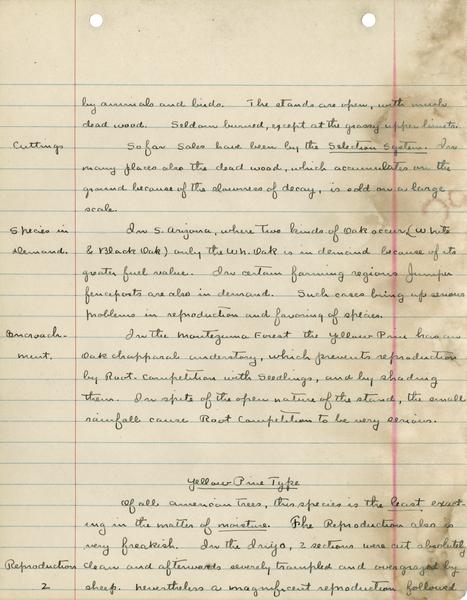 by animals and birds. The stands are open, with much
dead wood. Seldom burned, except at the grassy upper limits.
Cuttings So far Sales have been by the Selection System. In
many places also the dead wood, which accumulates on the
ground because of the slowness of decay, is sold on a large
scale.
Species in In S. Arizona, where two kinds of Oak occur (White
Demand. & Black Oak) only the Wh. Oak is in demand because of its
greater fuel value. In certain farming regions Juniper
fenceposts are also in demand. Such cases bring up serious
problems in reproduction and favoring of species.
Encroach- In the Montezuma Forest the Yellow Pine has an
ment. Oak chapparal understory, which prevents reproduction
by Root Competition with Seedlings, and by shading
them. In spite of the open nature of the stand, the small
rainfall cause Root Competition to be very serious.
Yellow Pine Type
Of all american trees, this species is the least exact-
ing in the matter of moisture. The Reproduction also is
very freakish. In the 2 sections were cut absolutely
Reproduction clean and afterwards severely trampled and overgrazed by
2 sheep. nevertheless a magnificent reproduction followed